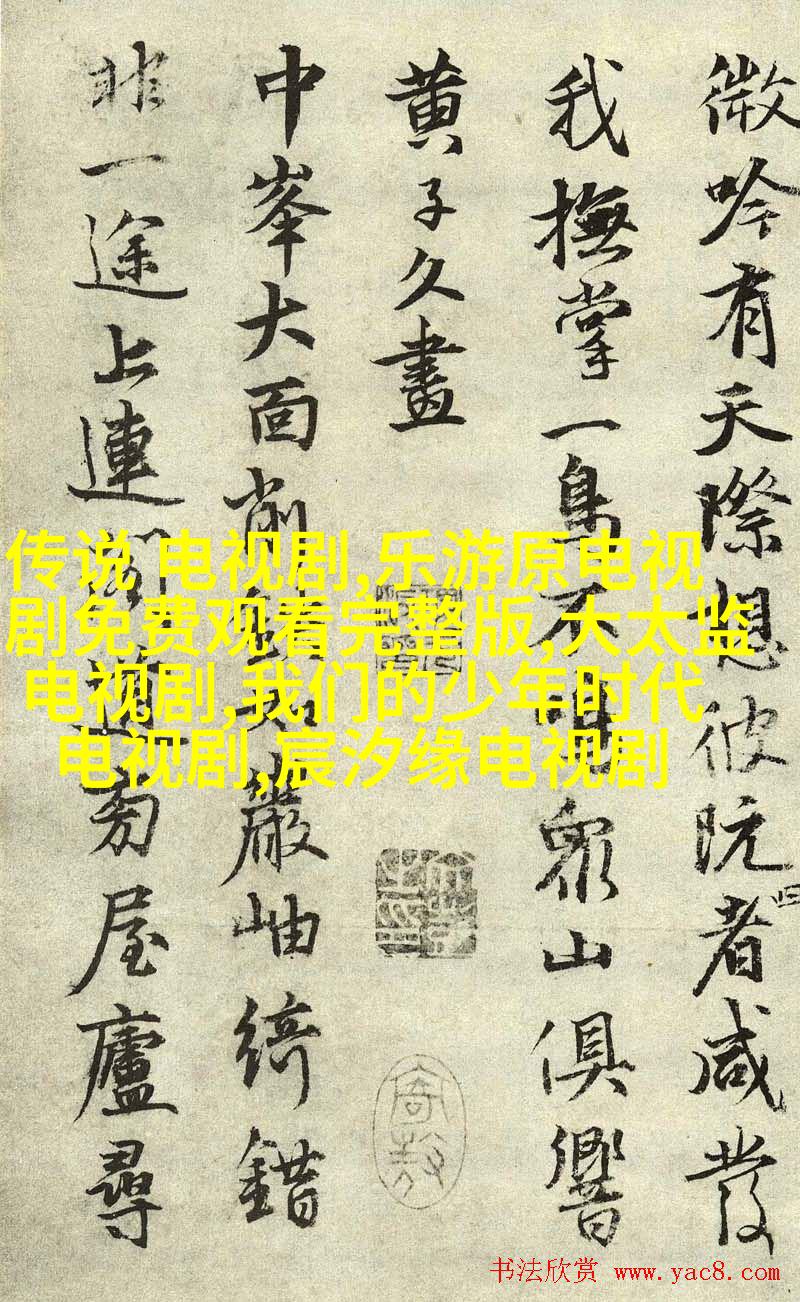 微吟有天際想彼阮者咸發
我撫掌一鳥不鳴眾山俱響
黃子久畫
中峯大面削巖岫綺錯
非一途上連屋廬尋
传说 电视剧,乐游原电视
剧免费观看完整版,大太监
电视剧,我们的少年时代
电视剧,宸汐缘电视剧
书法欣赏 www.yac8.com